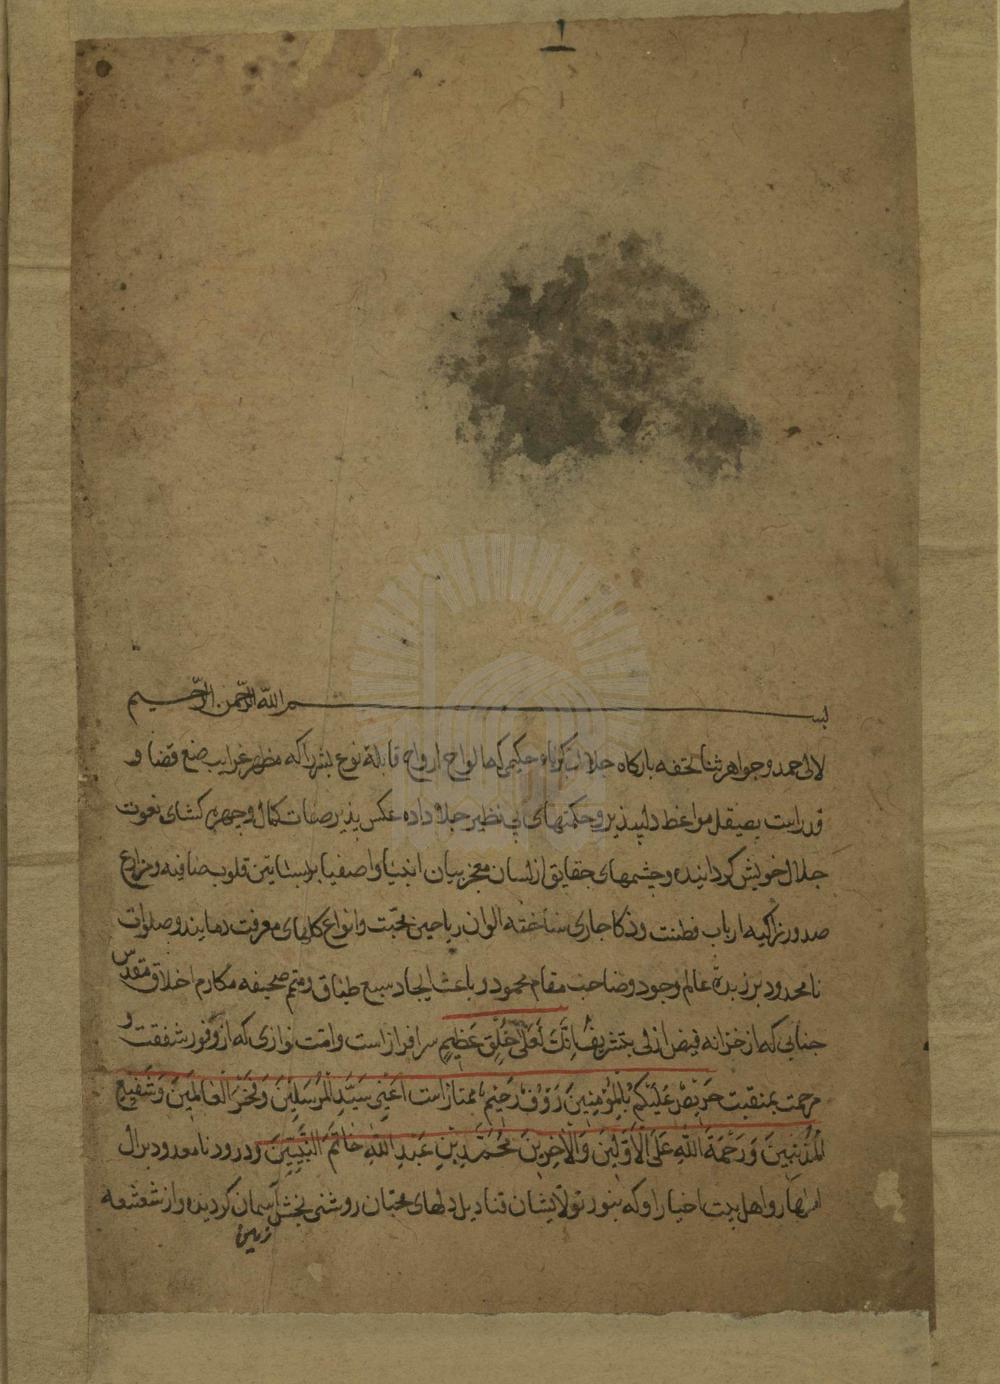 ١
بسم الله الرحمن الرحیم
لالی حمد و جواهر ثنا تحفه بارکاه جلالت کبریاء حکیمی که الواح ارواح قابلهٔ نوع بشر را که مظهر غرایب صنع قضا و
قدر است بصیقل مواعظ دلپذیر و حکمتهای بی نظیر جلا داده عکس پذیر صفات کمال و چهره کشای نعوت
جلال خویش کردانیده و چشمهای حقایق از لسان معجز بیان انبیا و اصفیا بر بساتین قلوب صافیه و مزارع
صدور زاکیه ارباب فطنت و ذکا جاری ساخته الوان ریاحین محبت و انواع کلهای معرفت دمانید و صلوات
نامحدود بر زبدهٔ عالم وجود و صاحب مقام محمود و باعث ایجاد سبع طباق و متمم صحیفه مکارم اخلاق مقدس
جنابی که از خزانه فیض ازلی بتشریف اِنَّكَ لَعَلىٰ خُلُقٍ عَظِيمٍ سرافراز است و امت نوازی که از وفور شفقت و
مرحمت بمنقبت حَرِيصٌ عَلَيْكُمْ بِالْمُؤْمِنِينَ رَؤُفٌ رَحِيمٌ ممتاز است اَعْنِي سَيِّدِ الْمُرْسَلِينَ وَفَخْرِ الْعَالَمِينَ وَشَفِيعِ
الْمُذْنِبِينَ وَرَحْمَةِ اللهِ عَلَى الْاَوَّلِينَ وَالْاٰخِرِينَ مُحَمَّدِ بْنِ عَبْدِ اللهِ خَاتَمِ النَّبِيِّينَ و درود نامعدود بر ال
اطهار و اهل بیت اخیار او که بنور تولای ایشان قنادیل دلهای محبان روشنی بخش آسمان کردیده و از شعشعه
زمین